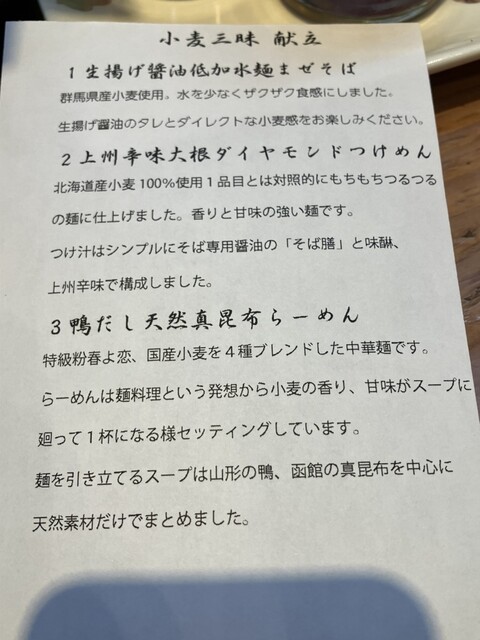 小麦三昧 献立
1生揚げ醤油低加水麺まぜそば
群馬県産小麦使用。水を少なくザクザク食感にしました。
生揚げ醤油のタレとダイレクトな小麦感をお楽しみください。
2上州辛味大根ダイヤモンドつけめん
北海道産小麦100%使用1品目とは対照的にもちもちつるつる
の麺に仕上げました。香りと甘味の強い麺です。
つけ汁はシンプルにそば専用醤油の「そば膳」と味醂、
上州辛味で構成しました。
3鴨だし天然真昆布らーめん
特級粉春よ恋、国産小麦を4種ブレンドした中華麺です。
らーめんは麺料理という発想から小麦の香り、甘味がスープに
廻って1杯になる様セッティングしています。
麺を引き立てるスープは山形の鴨、函館の真昆布を中心に
天然素材だけでまとめました。